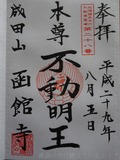 奉拝
平成二十九年
八月五日
第二十八番
本尊
不動明王
成田山
函館寺